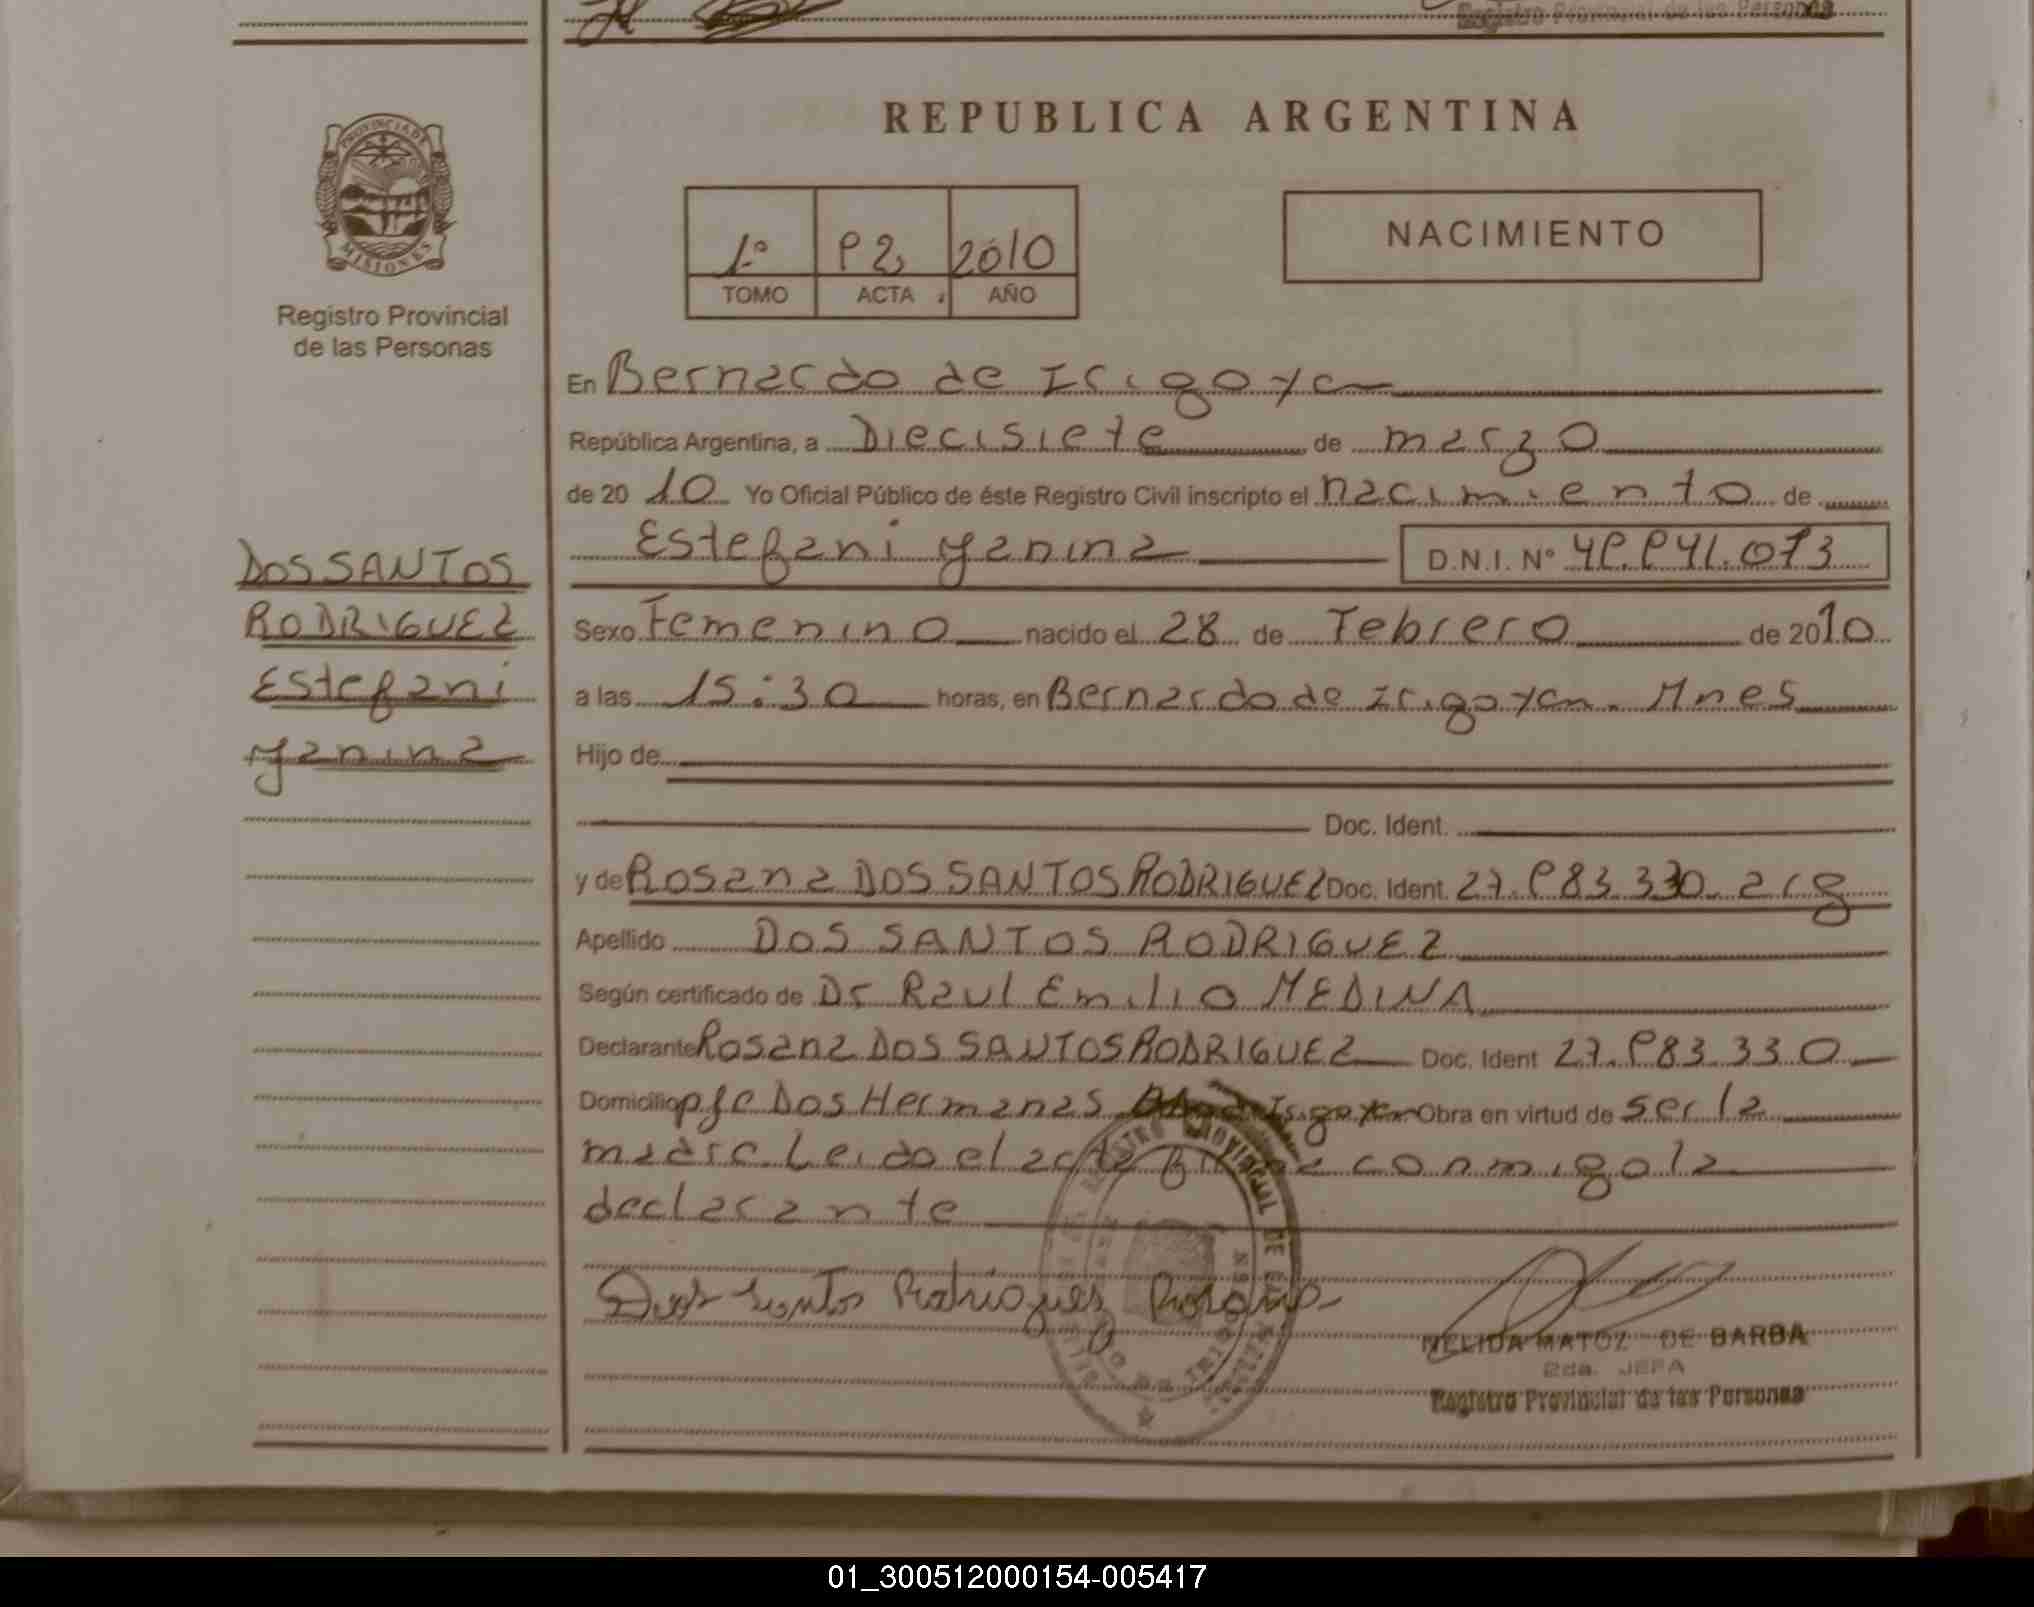 Registro Provincial de las Personas
REPUBLICA ARGENTINA
PROVINCIA DE
MISIONES
Registro Provincial
de las Personas
1º P2 2010
TOMO ACTA AÑO
NACIMIENTO
En Bernardo de Irigoyen
República Argentina, a Diecisiete de marzo
de 2010 Yo Oficial Público de éste Registro Civil inscripto el nacimiento de
Estefani yanina D.N.I. Nº
DOS SANTOS
RODRIGUEZ
Estefani
yanina
Sexo Femenino nacido el 28 de Febrero de 2010
a las 15:30 horas, en Bernardo de Irigoyen. Mnes
Hijo de
Doc. Ident.
y de Rosana DOS SANTOS RODRIGUEZ Doc. Ident. 27.983.330 arg
Apellido DOS SANTOS RODRIGUEZ
Según certificado de Dr Raul Emilio MEDINA
Declarante Rosana DOS SANTOS RODRIGUEZ Doc. Ident 27.983.330
Domicilio pje Dos Hermanas Irigoyen Obra en virtud de ser la
madre. Leido el acta firma conmigo la
declarante
Dos Santos Rodriguez Rosana
NELIDA MATOZ DE BARBA
2da. JEFA
Registro Provincial de las Personas
01_300512000154-005417